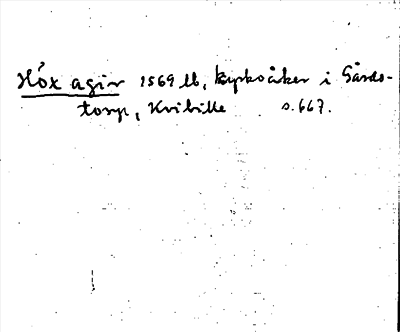 Höx agir 1569 lb, kyrkoåker i Gårds-
torp, Kvibille s. 667.